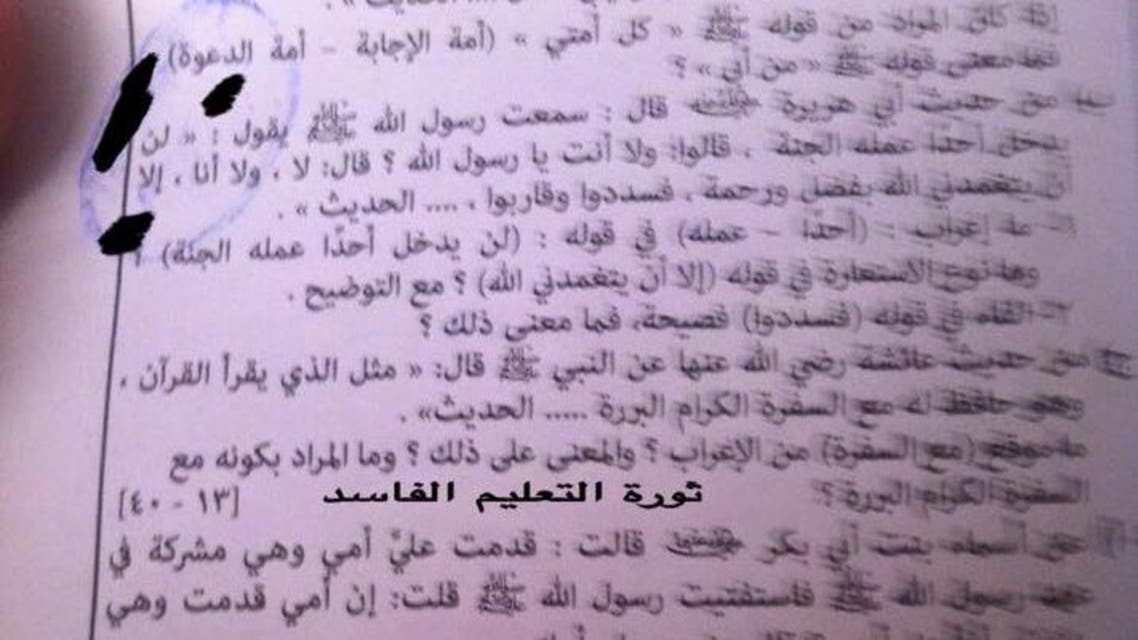 الحديث » .
إذا كان المراد من قوله ﷺ « كل أمتي » (أمة الإجابة - أمة الدعوة)
فما معنى قوله ﷺ « من أبى » ؟
من حديث أبي هريرة قال : سمعت رسول الله ﷺ يقول : « لن
يدخل أحدًا عمله الجنة ، قالوا: ولا أنت يا رسول الله ؟ قال: لا ، ولا أنا ، إلا
أن يتغمدني الله بفضل ورحمة ، فسددوا وقاربوا ، .... الحديث » .
ما إعراب : (أحدًا - عمله) في قوله : (لن يدخل أحدًا عمله الجنة) ؟
وما نوع الاستعارة في قوله (إلا أن يتغمدني الله) ؟ مع التوضيح .
الفاء في قوله (فسددوا) فصيحة، فما معنى ذلك ؟
من حديث عائشة رضي الله عنها عن النبي ﷺ قال: « مثل الذي يقرأ القرآن ،
وهو حافظ له مع السفرة الكرام البررة ..... الحديث» .
ما موقع (مع السفرة) من الإعراب ؟ والمعنى على ذلك ؟ وما المراد بكونه مع
السفرة الكرام البررة ؟ [١٣ - ٤٠]
ثورة التعليم الفاسد
عن أسماء بنت أبي بكر قالت : قدمت عليّ أمي وهي مشركة في
عهد رسول الله ﷺ فاستفتيت رسول الله ﷺ قلت: إن أمي قدمت وهي